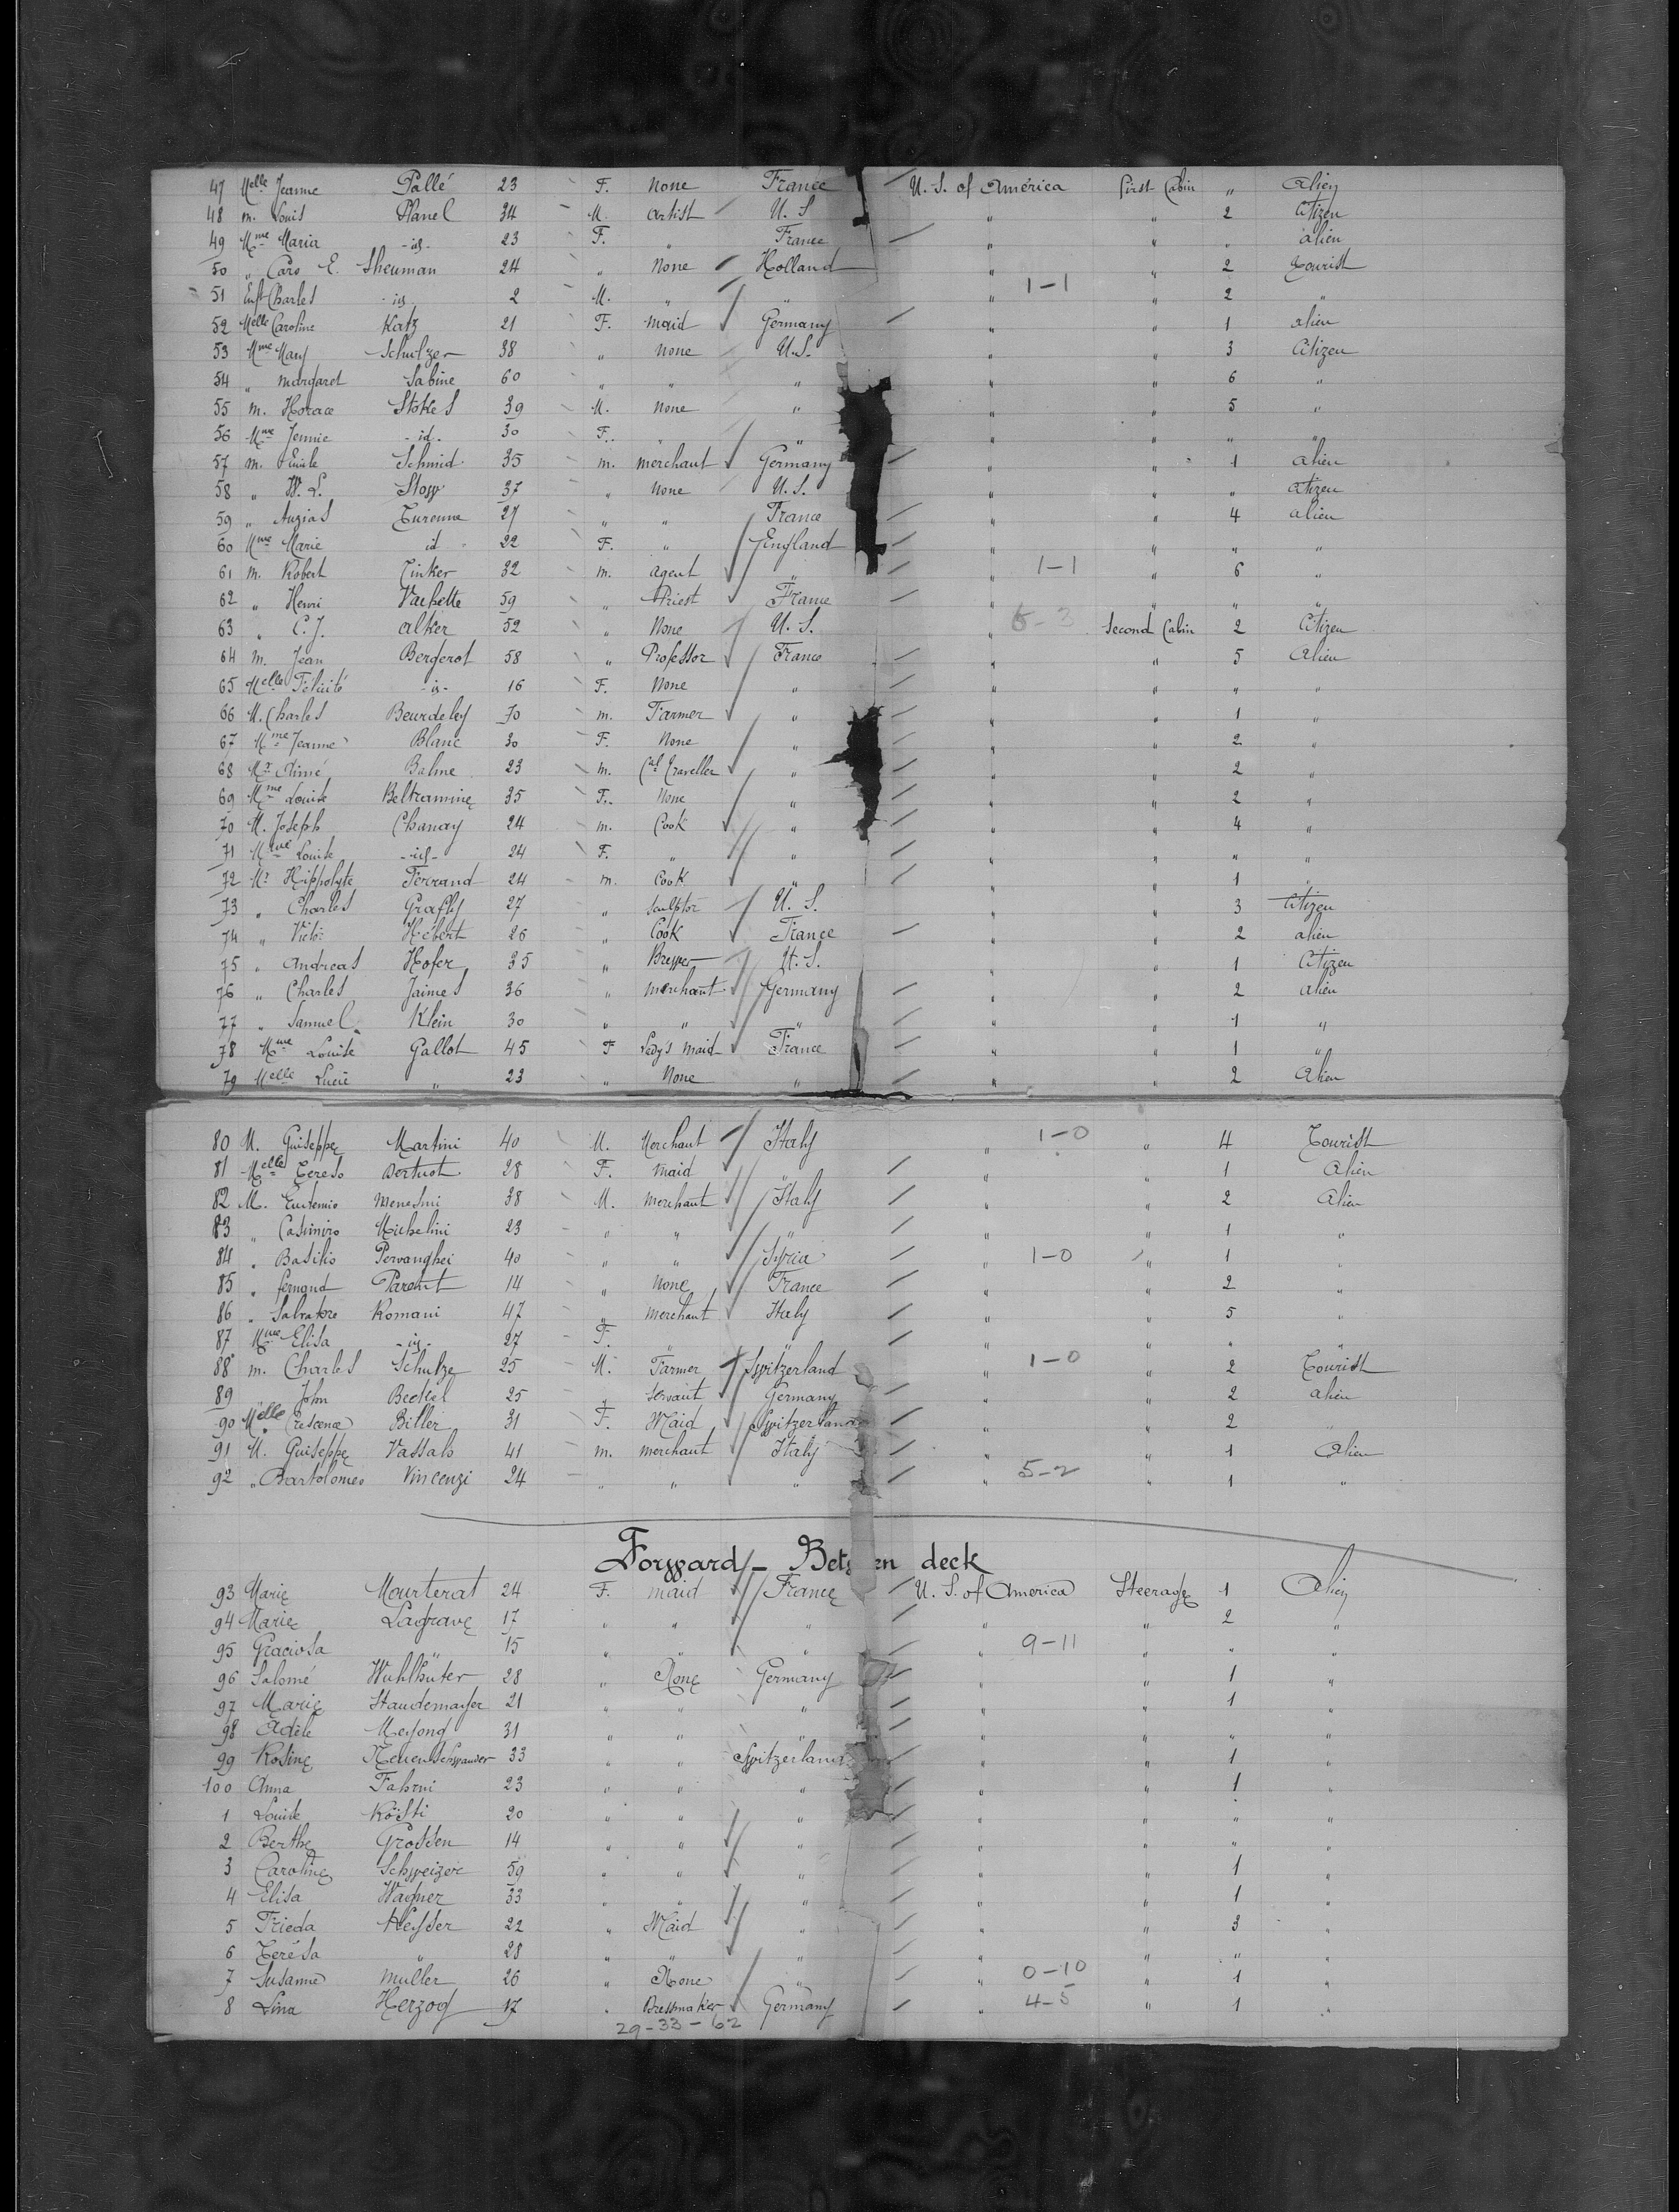 47 Melle Jeanne Pallé 23 F. None France U. S. of América First Cabin " Alien
48 m. Louis Planel 34 M. artist U. S " " 2 Citizen
49 Mme Maria - id - 23 F. " France " " " alien
50 " Caro E. Sheuman 24 " None Holland " " 2 Tourist
51 Enft Charles - id 2 M. " " " 1-1 " 2 "
52 Melle Caroline Katz 21 F. maid Germany " " 1 alien
53 Mme Mary Schulzer 38 " None U.S. " " 3 Citizen
54 " Margaret Sabine 60 " " " " " 6 "
55 m. Horace Stokes 39 M. None " " " 5 "
56 Mme Jennie - id - 30 F. " " " " " "
57 m. Emile Schmid 35 m. merchant Germany " " 1 alien
58 " W. L. Stow 37 " None U. S. " " " Citizen
59 " Auzias Turenne 27 " " France " " 4 alien
60 Mme Marie id 22 F. " England " " " "
61 m. Robert Tinker 32 m. agent " " 1-1 " 6 "
62 " Henri Vachette 59 " Priest France " " " "
63 " C. J. Alker 52 " None U. S. " 6-3 Second Cabin 2 Citizen
64 m. Jean Bergerot 58 " Professor France " " 5 Alien
65 Melle Félicité - id - 16 F. None " " " " "
66 M. Charles Beurdeley 70 m. Farmer " " " 1 "
67 Mme Jeanne Blanc 30 F. None " " " 2 "
68 Mr Aimé Balme 23 m. Cal Traveller " " " 2 "
69 Mme Louise Beltramine 35 F. None " " " 2 "
70 M. Joseph Chanay 24 m. Cook " " " 4 "
71 Mme Louise - id - 24 F. " " " " " "
72 Mr Hippolyte Ferrand 24 m. Cook " " " 1 "
73 " Charles Grafly 27 " Sculptor U. S. " " 3 Citizen
74 " Victor Hébert 26 " Cook France " " 2 alien
75 " Andreas Hofer 35 " Brewer U. S. " " 1 Citizen
76 " Charles Jaimes 36 " merchant Germany " " 2 alien
77 " Samuel Klein 30 " " " " " 1 "
78 Mme Louise Gallot 45 F Lady's maid France " " 1 "
79 Melle Lucie " 23 " None " " " 2 Alien
80 M. Guiseppe Martini 40 M. Merchant Italy " 1-0 " 4 Tourist
81 Melle Tereso 28 F. Maid " " " 1 Alien
82 M. Eudemio Menesini 38 M. Merchant Italy " " 2 Alien
83 " Casimiro Michelini 23 " " " " " 1 "
84 " Basilio Pervanghei 40 " " Syria " 1-0 " 1 "
85 " fernand Parent 14 " None France " " 2 "
86 " Salvatore Romani 47 " merchant Italy " " 5 "
87 Mme Elisa - id - 27 F. " " " " " "
88 m. Charles Schulze 25 M. Farmer Switzerland " 1-0 " 2 Tourist
89 " John Beckel 25 " Servant Germany " " 2 alien
90 Melle Crescence Biller 31 F. Maid Switzerland " " 2 "
91 M. Guiseppe Vassalo 41 m. merchant Italy " " 1 Alien
92 " Bartolomeo Vincenzi 24 " " " " 5-2 " 1 "
Forward - Between deck
93 Marie Mourterat 24 F. maid France U. S. of America Steerage 1 Alien
94 Marie Lagrave 17 " " " " " 2 "
95 Graciosa " 15 " " " " 9-11 " " "
96 Salomé Wuhlhuter 28 " None Germany " " 1 "
97 Marie Staudemayer 21 " " " " " 1 "
98 Adèle Meyong 31 " " " " " " "
99 Rosine Neuenschwander 33 " " Switzerland " " 1 "
100 Anna Fahrni 23 " " " " " 1 "
1 Louise Kösti 20 " " " " " " "
2 Berthe Grossen 14 " " " " " " "
3 Caroline Schweizer 59 " " " " " 1 "
4 Elisa Wagner 33 " " " " " 1 "
5 Frieda Keyser 22 " Maid " " " 3 "
6 Terésa " 28 " " " " " " "
7 Susanne Müller 26 " None " " 0-10 " 1 "
8 Lina Herzog 17 " Dressmaker Germany " 4-5 " 1 "
29-33-62